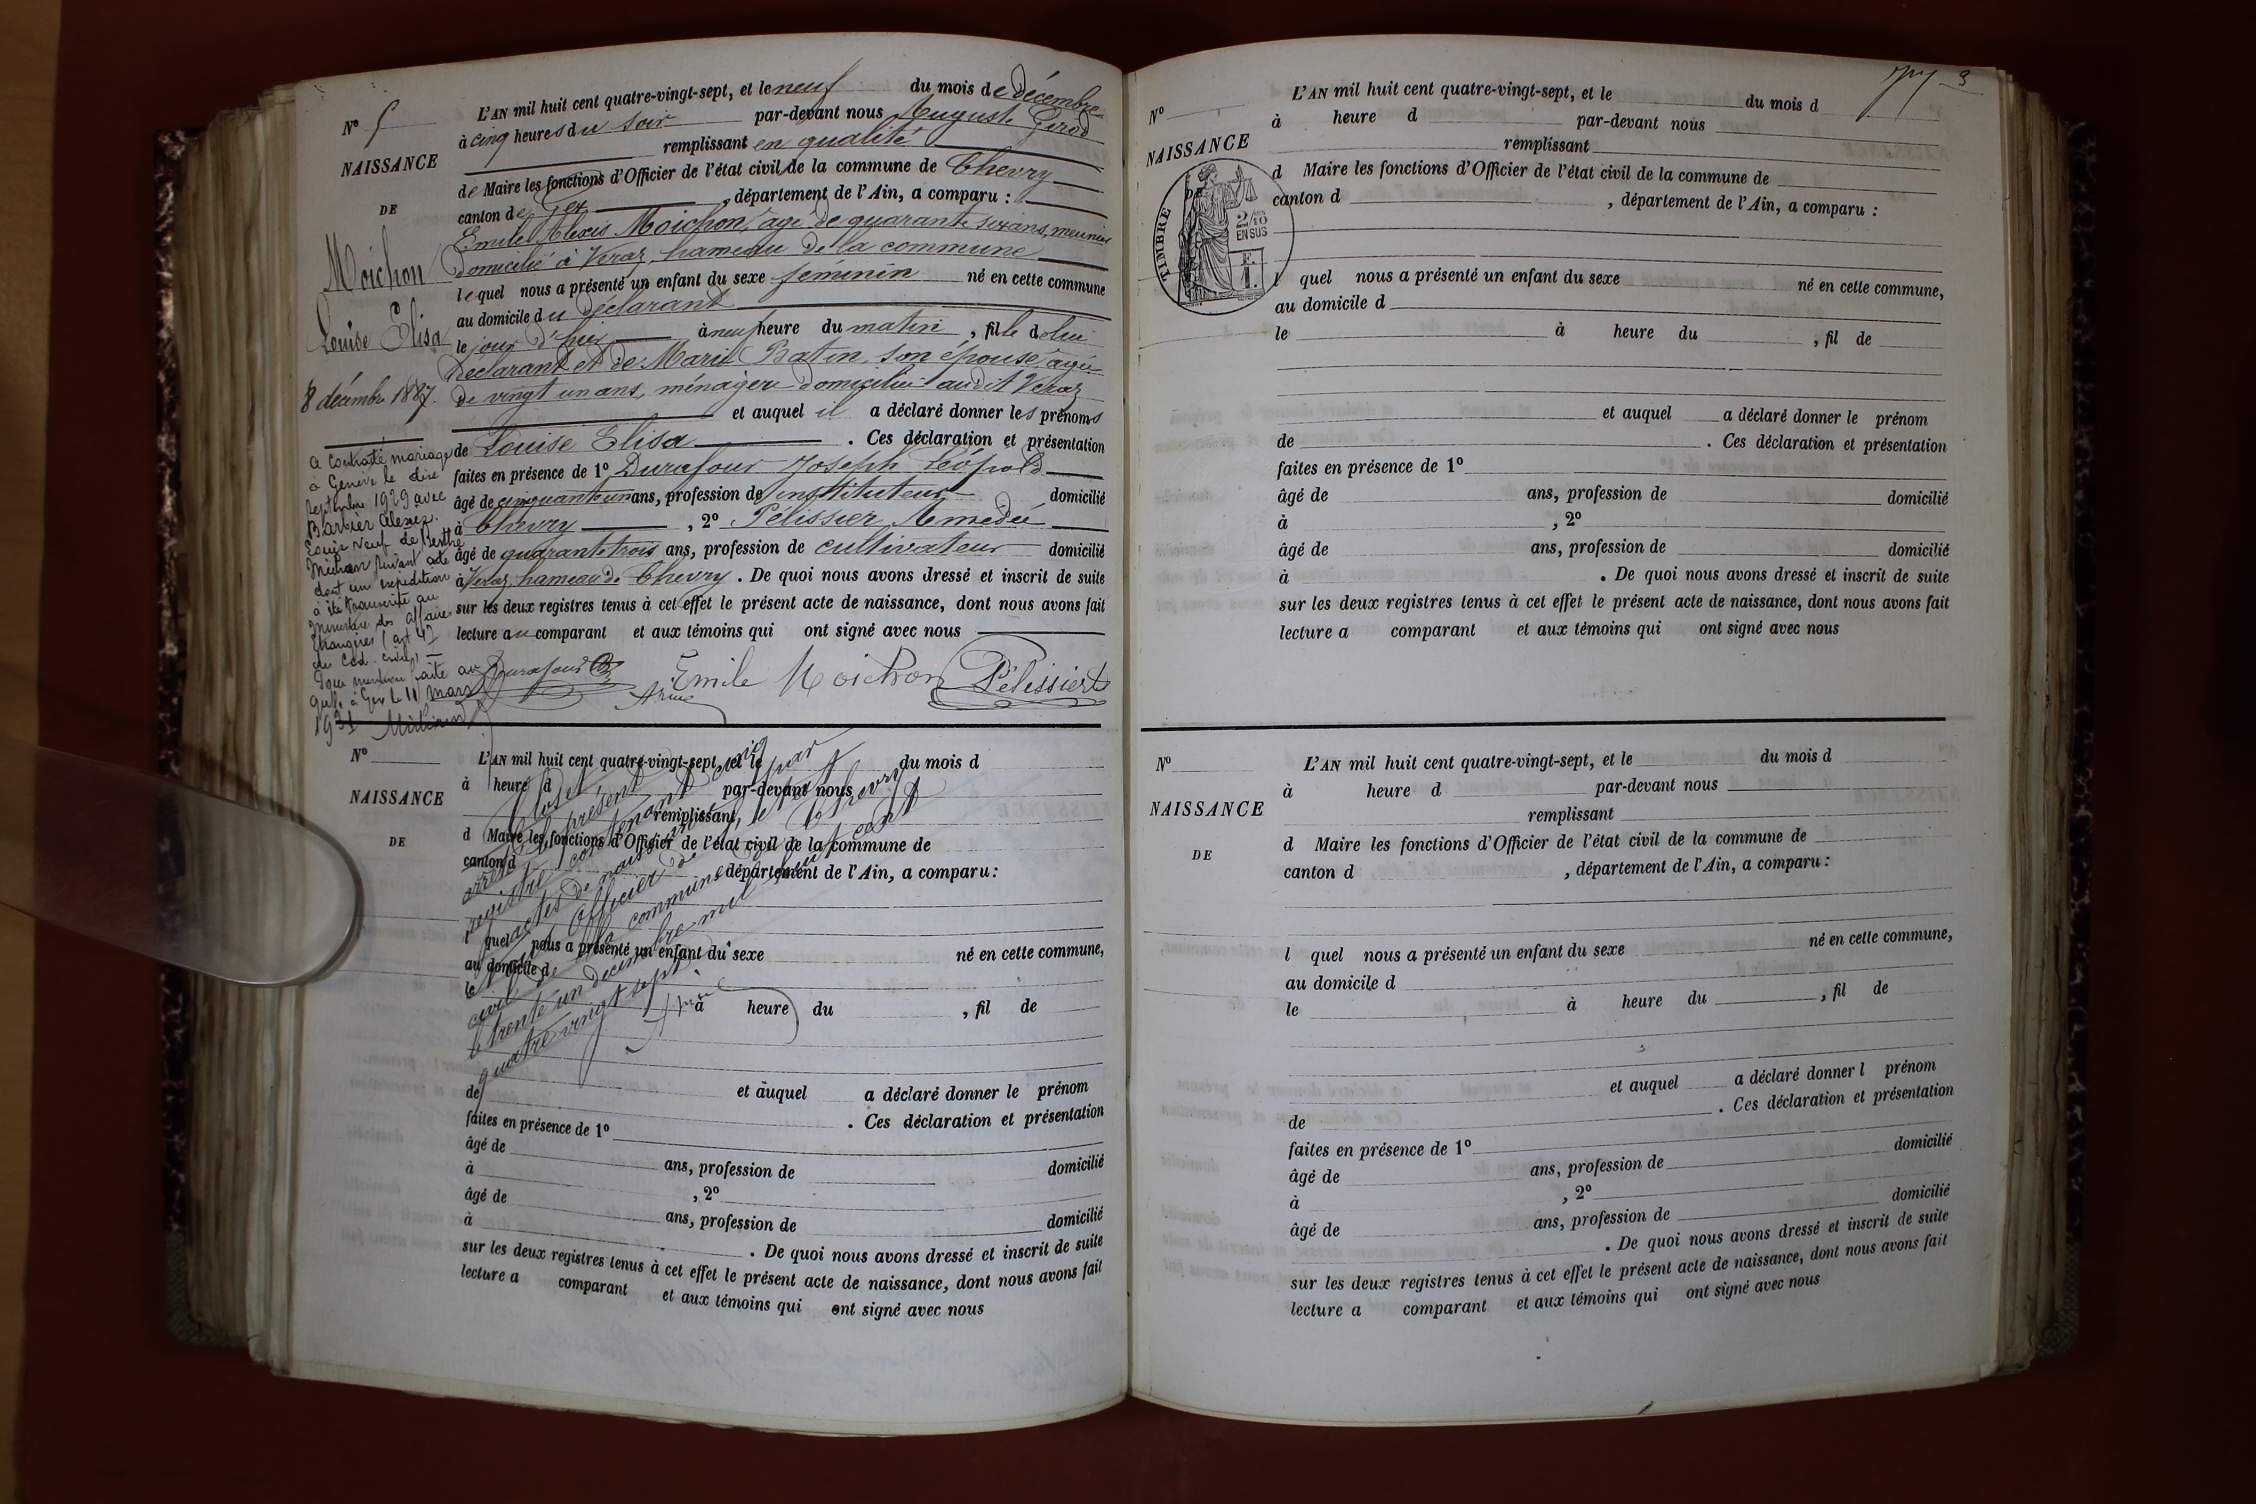 Nº 5
NAISSANCE
DE
Moichon
Louise Elisa
8 décembre 1887.
a contracté mariage
à Genève le dix
septembre 1929 avec
Barbier Alexis
Louis veuf de Berthe
suivant acte
dont une expédition
a été transcrite au
Ministère des Affaires
Etrangères (art 47
du Cod. civil) —
Pour mention faite au
greffe à Gex le 11 mars
1931
L'AN mil huit cent quatre-vingt-sept, et le neuf du mois de décembre
à cinq heures du soir par-devant nous Auguste Girod
remplissant en qualité
de Maire les fonctions d'Officier de l'état civil de la commune de Chevry
canton de Gex, département de l'Ain, a comparu :
Emile Alexis Moichon, âgé de quarante six ans, meunier
domicilié à Véraz, hameau de la commune
lequel nous a présenté un enfant du sexe féminin né en cette commune
au domicile du déclarant
le jour d'hier à neuf heure du matin, fille de lui
déclarant et de Marie Batin, son épouse, âgée
de vingt un ans, ménagère domiciliée audit Véraz
et auquel il a déclaré donner les prénoms
de Louise Elisa. Ces déclaration et présentation
faites en présence de 1º Durafour Joseph Léopold
âgé de cinquante un ans, profession de instituteur domicilié
à Chevry, 2º Pélissier Amédée
âgé de quarante trois ans, profession de cultivateur domicilié
à Véraz, hameau de Chevry. De quoi nous avons dressé et inscrit de suite
sur les deux registres tenus à cet effet le présent acte de naissance, dont nous avons fait
lecture au comparant et aux témoins qui ont signé avec nous
Durafour Emile Moichon Pélissier
Nº
NAISSANCE
DE
L'AN mil huit cent quatre-vingt-sept, et le du mois d
à heure d par-devant nous
remplissant
d Maire les fonctions d'Officier de l'état civil de la commune de
canton d département de l'Ain, a comparu :
l quel nous a présenté un enfant du sexe né en cette commune,
au domicile d
le à heure du , fil de
et auquel a déclaré donner le prénom
de . Ces déclaration et présentation
faites en présence de 1º
âgé de ans, profession de domicilié
à , 2º
âgé de ans, profession de domicilié
à . De quoi nous avons dressé et inscrit de suite
sur les deux registres tenus à cet effet le présent acte de naissance, dont nous avons fait
lecture a comparant et aux témoins qui ont signé avec nous
Clos et
arrêté le présent
registre contenant cinq
actes de naissance, par
nous Officier de l'état
civil de la commune de Chevry
le trente un décembre mil huit cent
quatre vingt sept
3
Nº
NAISSANCE
DE
TIMBRE
2/10
EN SUS
F.
1.
L'AN mil huit cent quatre-vingt-sept, et le du mois d
à heure d par-devant nous
remplissant
d Maire les fonctions d'Officier de l'état civil de la commune de
canton d , département de l'Ain, a comparu :
l quel nous a présenté un enfant du sexe né en cette commune,
au domicile d
le à heure du , fil de
et auquel a déclaré donner le prénom
de . Ces déclaration et présentation
faites en présence de 1º
âgé de ans, profession de domicilié
à , 2º
âgé de ans, profession de domicilié
à . De quoi nous avons dressé et inscrit de suite
sur les deux registres tenus à cet effet le présent acte de naissance, dont nous avons fait
lecture a comparant et aux témoins qui ont signé avec nous
Nº
NAISSANCE
DE
L'AN mil huit cent quatre-vingt-sept, et le du mois d
à heure d par-devant nous
remplissant
d Maire les fonctions d'Officier de l'état civil de la commune de
canton d , département de l'Ain, a comparu :
l quel nous a présenté un enfant du sexe né en cette commune,
au domicile d
le à heure du , fil de
et auquel a déclaré donner l prénom
de . Ces déclaration et présentation
faites en présence de 1º
âgé de ans, profession de domicilié
à , 2º
âgé de ans, profession de domicilié
à . De quoi nous avons dressé et inscrit de suite
sur les deux registres tenus à cet effet le présent acte de naissance, dont nous avons fait
lecture a comparant et aux témoins qui ont signé avec nous